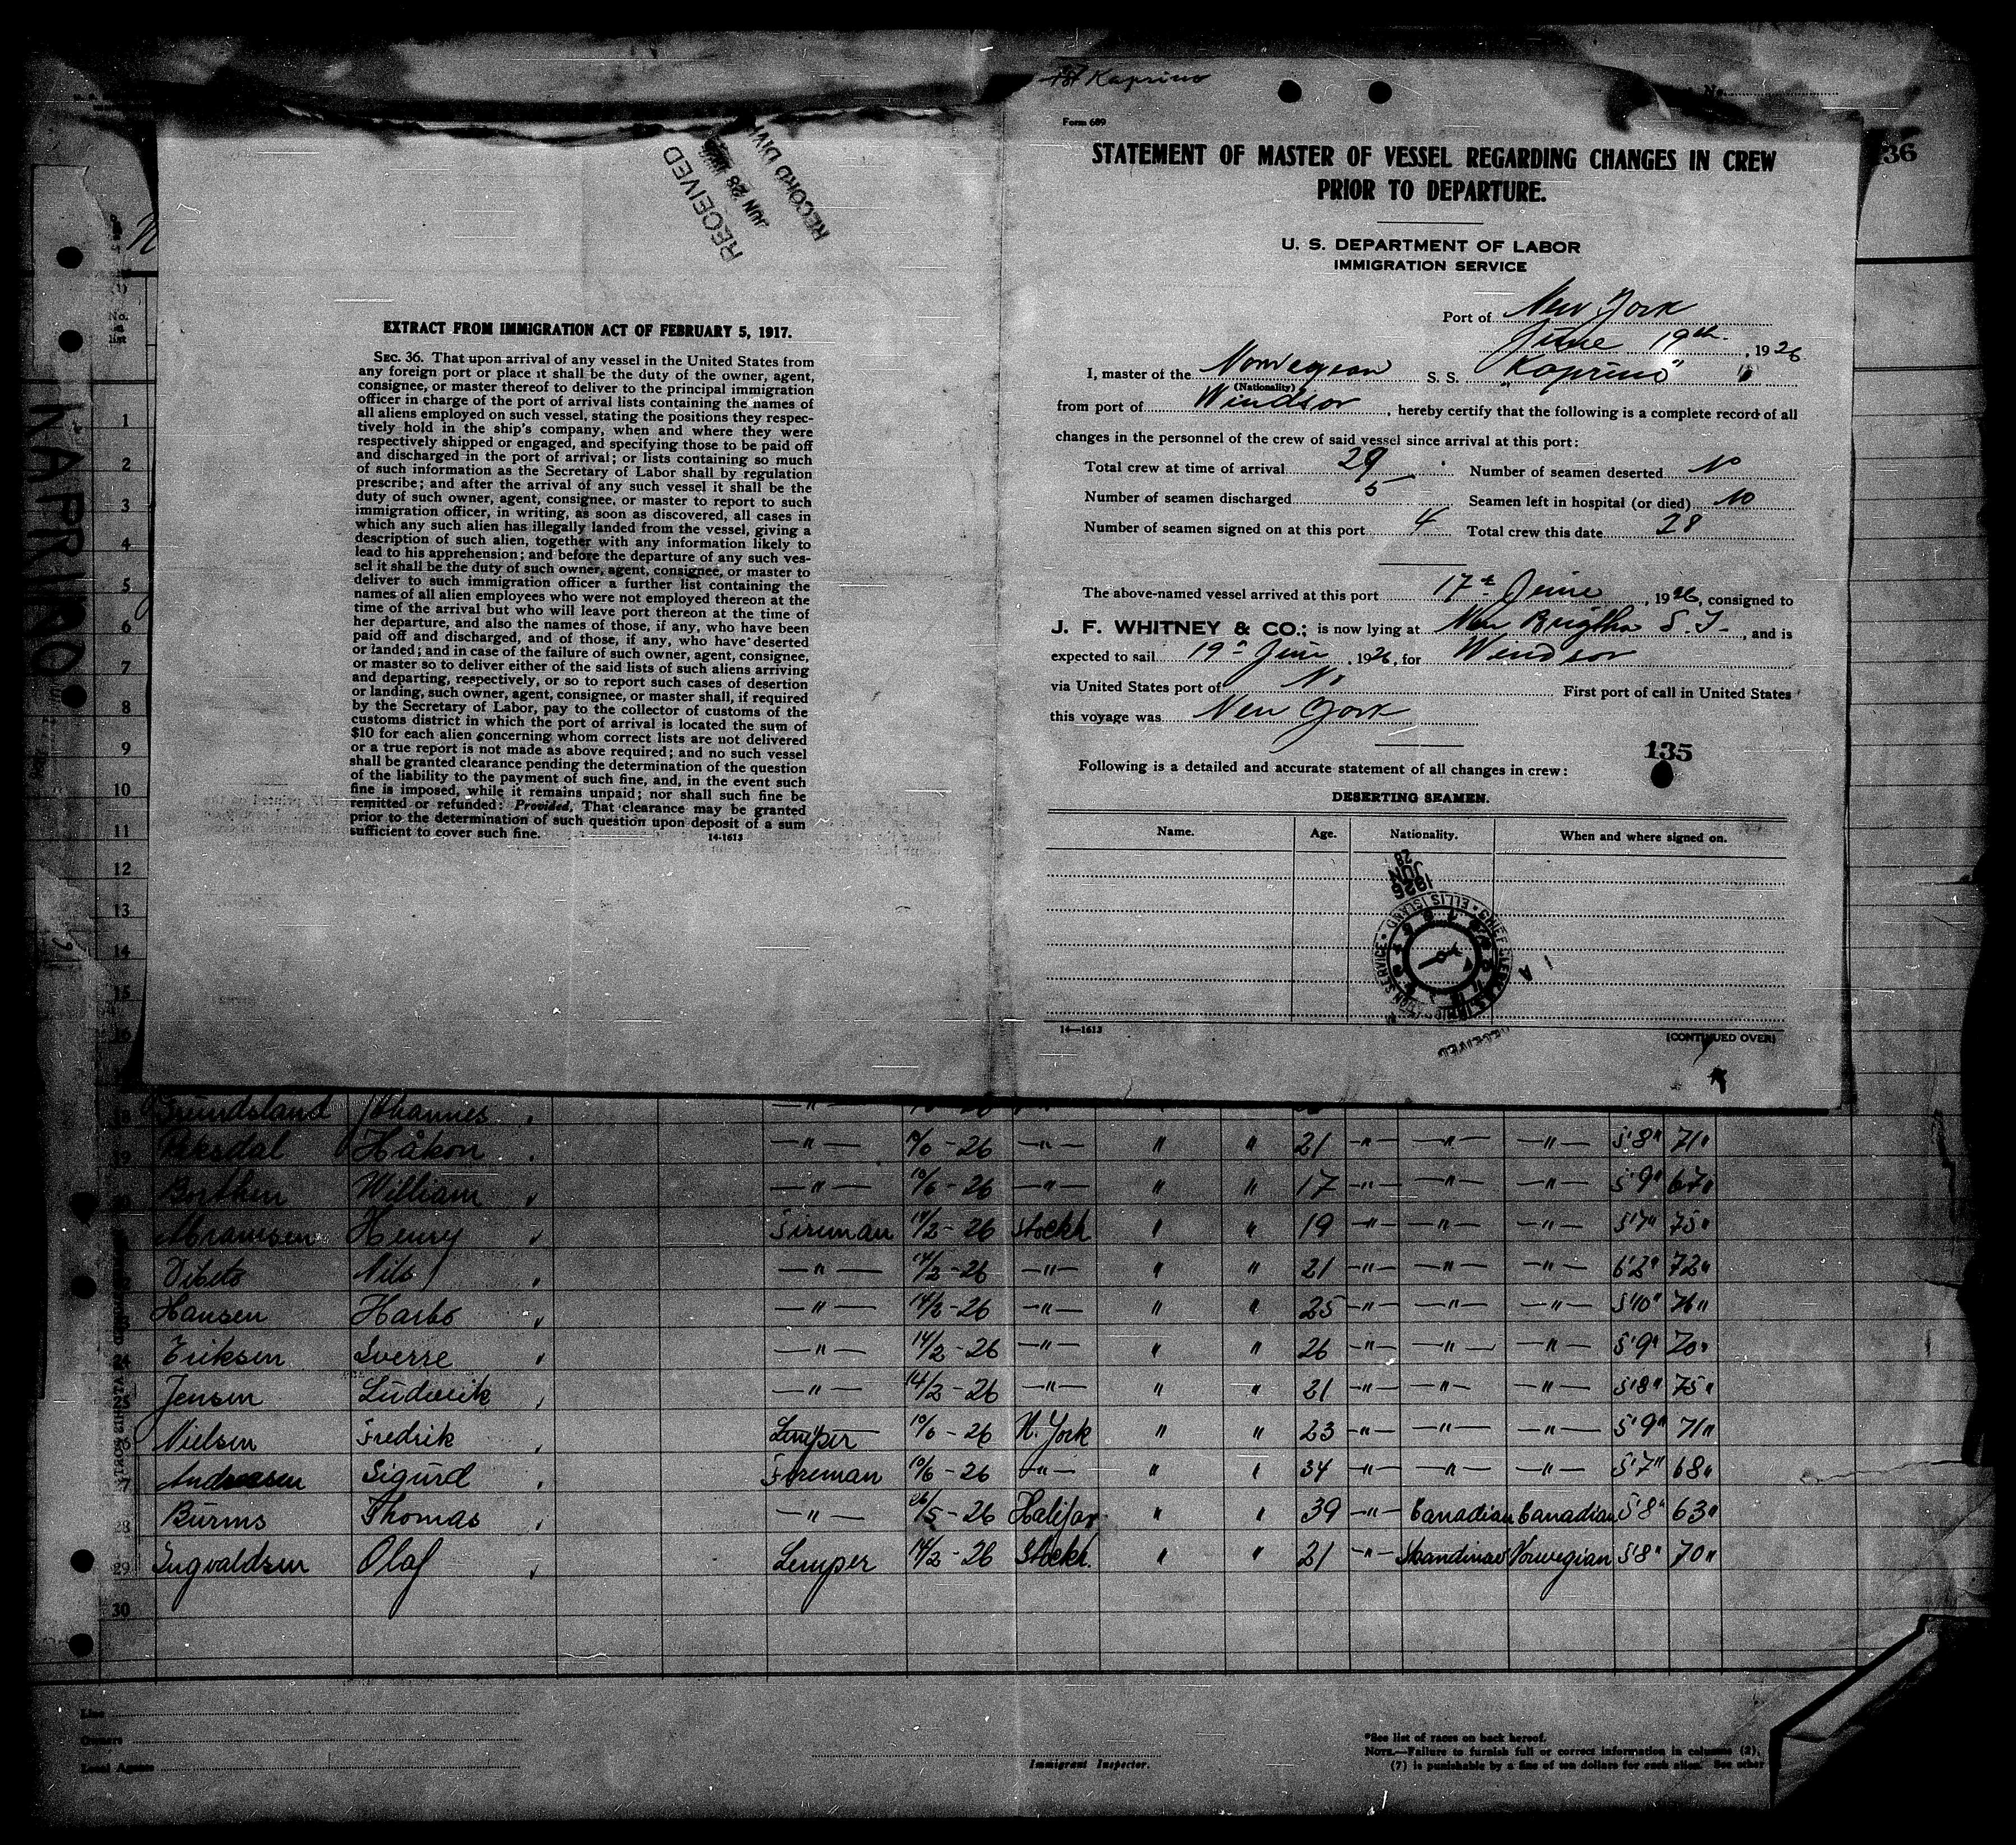 Kaprino
KAPRINO
136
RECEIVED
JUN 28
RECORD DIV
EXTRACT FROM IMMIGRATION ACT OF FEBRUARY 5, 1917.
SEC. 36. That upon arrival of any vessel in the United States from
any foreign port or place it shall be the duty of the owner, agent,
consignee, or master thereof to deliver to the principal immigration
officer in charge of the port of arrival lists containing the names of
all aliens employed on such vessel, stating the positions they respec-
tively hold in the ship's company, when and where they were
respectively shipped or engaged, and specifying those to be paid off
and discharged in the port of arrival; or lists containing so much
of such information as the Secretary of Labor shall by regulation
prescribe; and after the arrival of any such vessel it shall be the
duty of such owner, agent, consignee, or master to report to such
immigration officer, in writing, as soon as discovered, all cases in
which any such alien has illegally landed from the vessel, giving a
description of such alien, together with any information likely to
lead to his apprehension; and before the departure of any such ves-
sel it shall be the duty of such owner, agent, consignee, or master to
deliver to such immigration officer a further list containing the
names of all alien employees who were not employed thereon at the
time of the arrival but who will leave port thereon at the time of
her departure, and also the names of those, if any, who have been
paid off and discharged, and of those, if any, who have deserted
or landed; and in case of the failure of such owner, agent, consignee,
or master so to deliver either of the said lists of such aliens arriving
and departing, respectively, or so to report such cases of desertion
or landing, such owner, agent, consignee, or master shall, if required
by the Secretary of Labor, pay to the collector of customs of the
customs district in which the port of arrival is located the sum of
$10 for each alien concerning whom correct lists are not delivered
or a true report is not made as above required; and no such vessel
shall be granted clearance pending the determination of the question
of the liability to the payment of such fine, and, in the event such
fine is imposed, while it remains unpaid; nor shall such fine be
remitted or refunded: Provided, That clearance may be granted
prior to the determination of such question upon deposit of a sum
sufficient to cover such fine.
14-1613
Form 689
STATEMENT OF MASTER OF VESSEL REGARDING CHANGES IN CREW
PRIOR TO DEPARTURE.
U. S. DEPARTMENT OF LABOR
IMMIGRATION SERVICE
Port of New York
June 19th, 1926
I, master of the Norwegian S. S. "Kaprino"
(Nationality)
from port of Windsor, hereby certify that the following is a complete record of all
changes in the personnel of the crew of said vessel since arrival at this port:
Total crew at time of arrival 29 Number of seamen deserted No
Number of seamen discharged 5 Seamen left in hospital (or died) No
Number of seamen signed on at this port 4 Total crew this date 28
The above-named vessel arrived at this port 17th June, 1926, consigned to
J. F. WHITNEY & CO.; is now lying at New Brigthon S. I., and is
expected to sail 19th June, 1926, for Windsor
via United States port of No First port of call in United States
this voyage was New York
135
Following is a detailed and accurate statement of all changes in crew:
DESERTING SEAMEN.
Name. Age. Nationality. When and where signed on.
1926 JUN 28
ELLIS ISLAND
RECEIVED
14—1613
(CONTINUED OVER)
No. in list
1
2
3
4
5
6
7
8
9
10
11
12
13
14
15
16
18 Johannes
19 Håkon —"— —26 —"— " " 21 —"— —"— —"— 5'8" 71"
Borthen William —"— 10/6 - 26 —"— " " 17 —"— —"— —"— 5'9" 67"
Abramsen Henry Fireman 14/2 - 26 Stockh " " 19 —"— —"— —"— 5'7" 75"
Nils —"— 14/2 - 26 —"— " " 21 —"— —"— —"— 6'2" 72"
Hansen Harbo —"— 14/2 - 26 —"— " " 25 —"— —"— —"— 5'10" 76"
24 Eriksen Sverre —"— 14/2 - 26 —"— " " 26 —"— —"— —"— 5'9" 70"
Jensen Ludvik —"— 14/2 - 26 —"— " " 21 —"— —"— —"— 5'8" 75"
Nielsen Fredrik Lemper 10/6 - 26 N. York " " 23 —"— —"— —"— 5'9" 71"
Andreasen Sigurd Fireman 10/6 - 26 —"— " " 34 —"— —"— —"— 5'7" 68"
28 Burns Thomas —"— 26/5 - 26 Halifax " " 39 —"— Canadian Canadian 5'8" 63"
29 Ingvaldsen Olaf Lemper 14/2 - 26 Stockh. " " 21 —"— Skandinav Norwegian 5'8" 70"
30
Line
Owners
Local Agents
Immigrant Inspector.
*See list of races on back hereof.
NOTE.—Failure to furnish full or correct information in columns (2),
(7) is punishable by a fine of ten dollars for each alien. See other